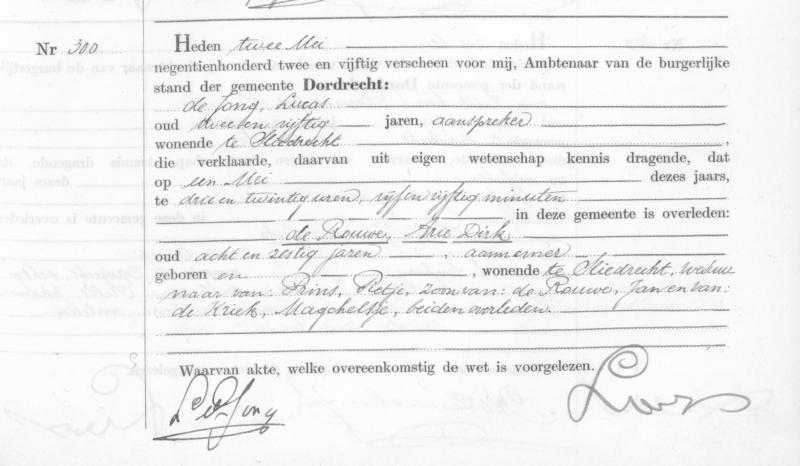 Nr 300
Heden twee Mei
negentienhonderd twee en vijftig verscheen voor mij, Ambtenaar van de burgerlijke
stand der gemeente Dordrecht:
de Jong, Lucas
oud twee en vijftig jaren, aanspreker
wonende te Sliedrecht ,
die verklaarde, daarvan uit eigen wetenschap kennis dragende, dat
op een Mei dezes jaars,
te drie en twintig uren, vijf en vijftig minuten
in deze gemeente is overleden:
de Rouwe, Arie Dirk
oud acht en zestig jaren , aannemer
geboren en , wonende te Sliedrecht, weduw
naar van: Prins, Pietje, zoon van: de Rouwe, Jan en van:
de Kriek, Magcheltje, beiden overleden.
Waarvan akte, welke overeenkomstig de wet is voorgelezen.
L de Jong